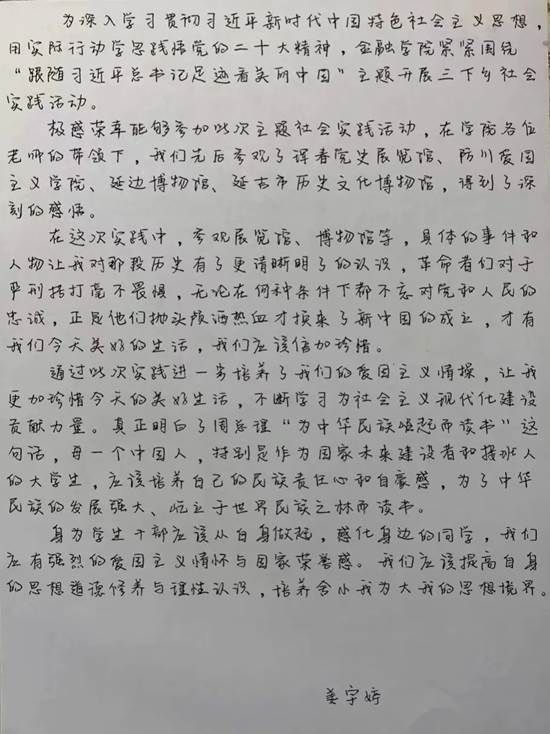 为深入学习贯彻习近平新时代中国特色社会主义思想，
用实际行动学思践悟党的二十大精神，金融学院紧紧围绕
“跟随习近平总书记足迹看美丽中国”主题开展三下乡社会
实践活动。
极感荣幸能够参加此次主题社会实践活动，在学院各位
老师的带领下，我们先后参观了珲春党史展览馆、防川爱国
主义学院、延边博物馆、延吉市历史文化博物馆，得到了深
刻的感悟。
在这次实践中，参观展览馆、博物馆等，具体的事件和
人物让我对那段历史有了更清晰明了的认识，革命者们对于
严刑拷打毫不畏惧，无论在何种条件下都不忘对党和人民的
忠诚，正是他们抛头颅洒热血才换来了新中国的成立，才有
我们今天美好的生活，我们应该倍加珍惜。
通过此次实践进一步培养了我们的爱国主义情操，让我
更加珍惜今天的美好生活，不断学习为社会主义现代化建设
贡献力量。真正明白了周总理“为中华民族崛起而读书”这
句话，每一个中国人，特别是作为国家未来建设者和接班人
的大学生，应该培养自己的民族责任心和自豪感，为了中华
民族的发展强大、屹立于世界民族之林而读书。
身为学生干部应该从自身做起，感化身边的同学，我们
应有强烈的爱国主义情怀与国家荣誉感。我们应该提高自身
的思想道德修养与理性认识，培养舍小我为大我的思想境界。
姜宇婷